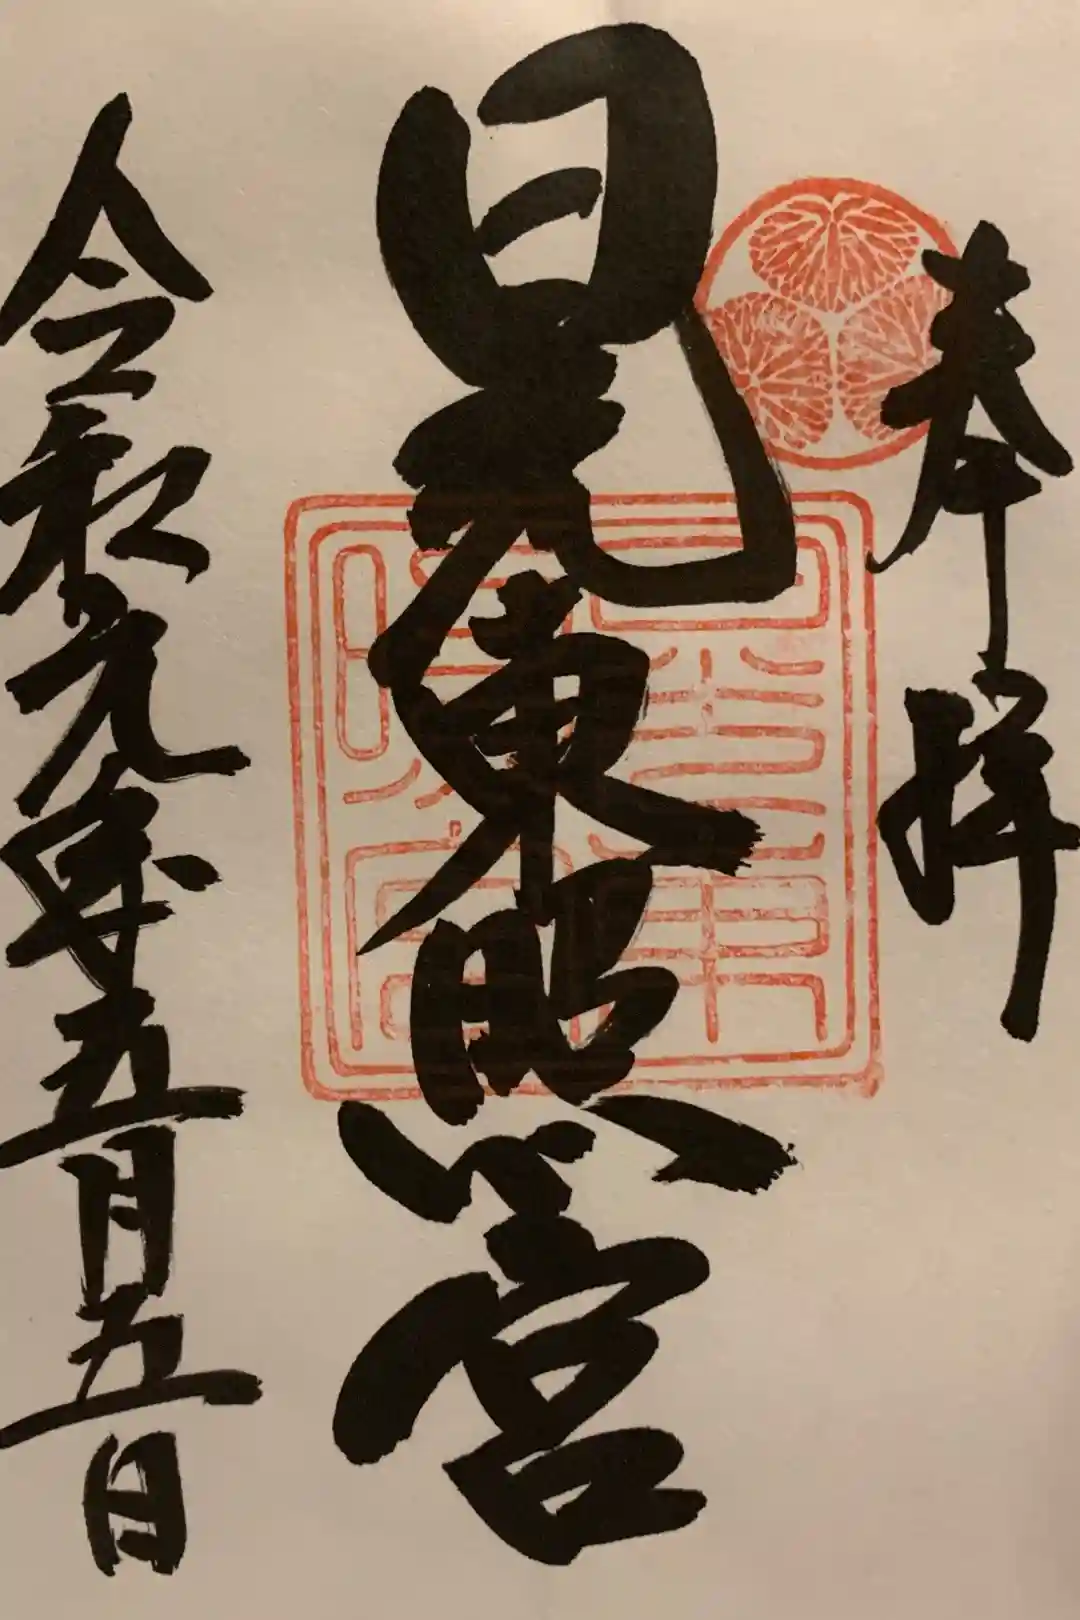 奉拝
日光東照宮
令和元年五月五日